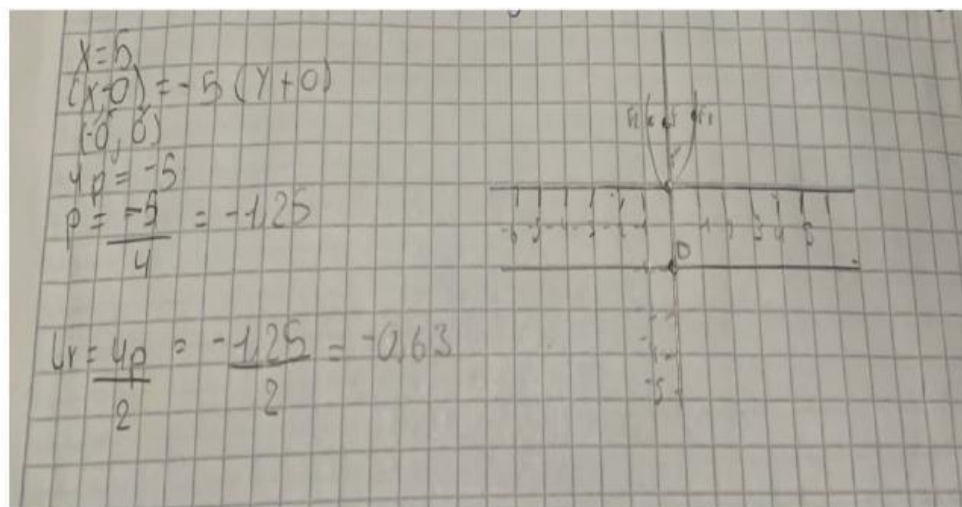 x=5
(x-0)=-5(y+0)
(-0, 0)
4p=-5
p = -5/4 = -1,25
Lr = 4p/2 = -1,25/2 = -0,63
-6 -5 -4 -3 -2 -1 1 2 3 4 5
0
-5